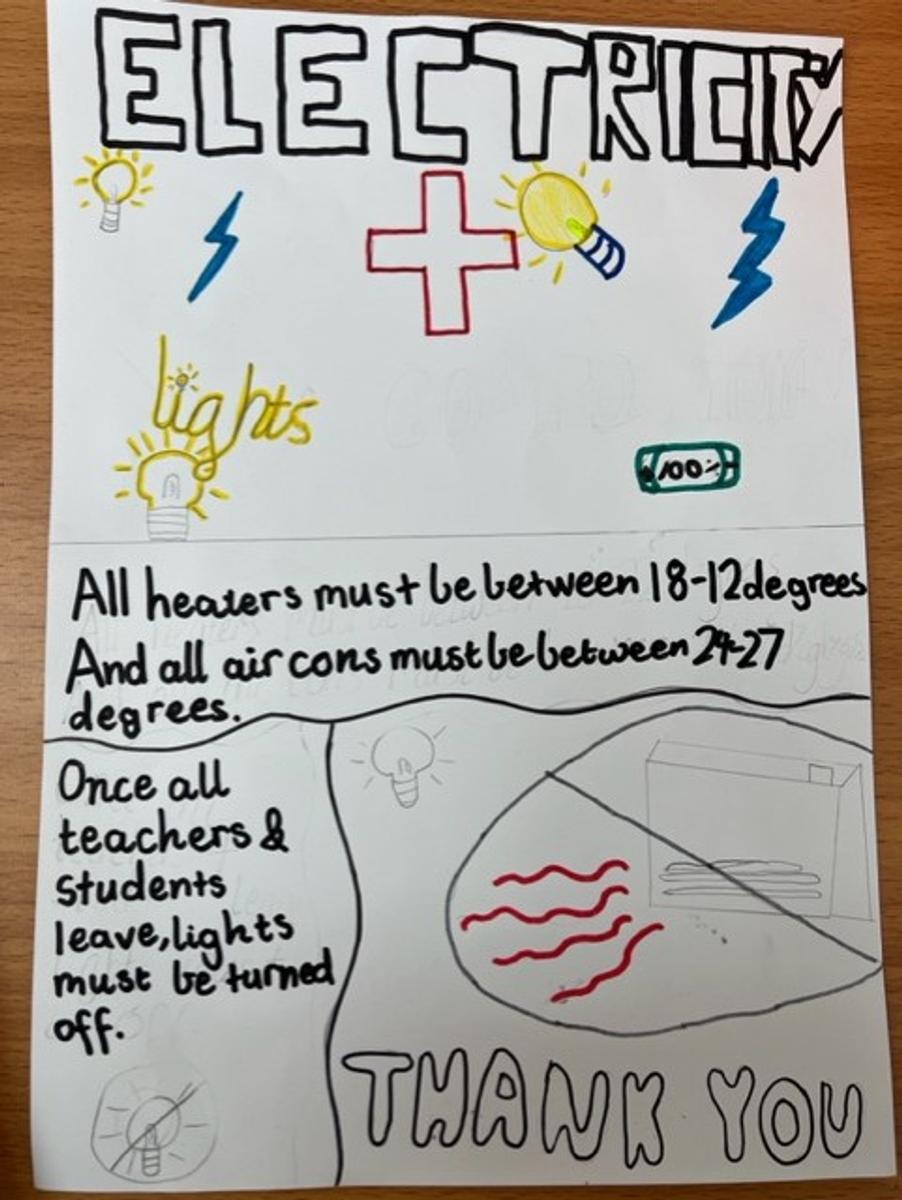 ELECTRICITY
lights
100%
All heaters must be between 18-12degrees
And all air cons must be between 24-27
degrees.
Once all
teachers &
students
leave, lights
must be turned
off.
THANK YOU